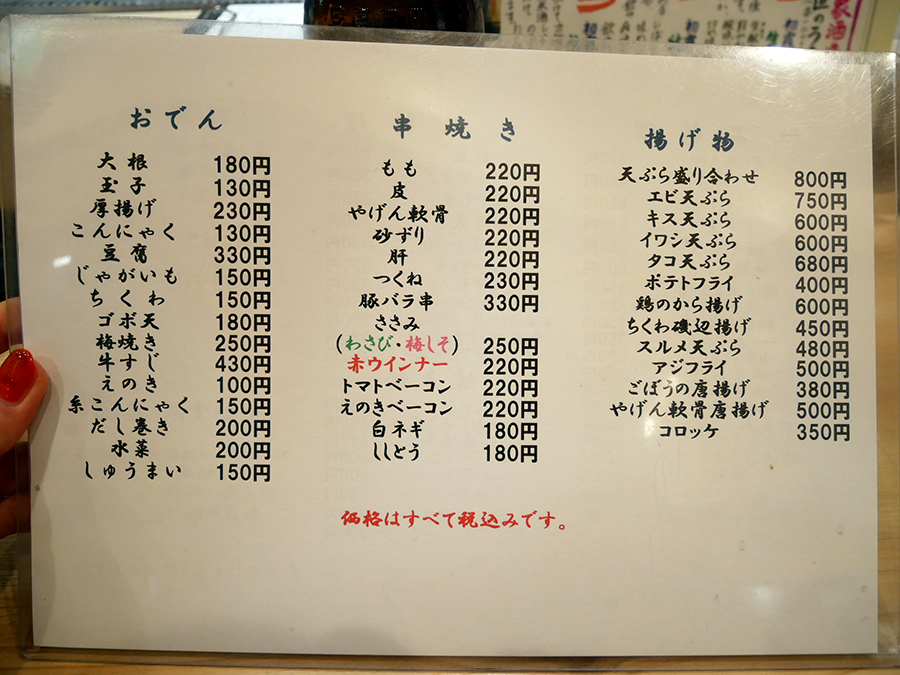 おでん
大根 180円
玉子 130円
厚揚げ 230円
こんにゃく 130円
豆腐 330円
じゃがいも 150円
ちくわ 150円
ゴボ天 180円
梅焼き 250円
牛すじ 430円
えのき 100円
糸こんにゃく 150円
だし巻き 200円
水菜 200円
しゅうまい 150円
串焼き
もも 220円
皮 220円
やげん軟骨 220円
砂ずり 220円
肝 220円
つくね 230円
豚バラ串 330円
ささみ
(わさび・梅しそ) 250円
赤ウインナー 220円
トマトベーコン 220円
えのきベーコン 220円
白ネギ 180円
ししとう 180円
揚げ物
天ぷら盛り合わせ 800円
エビ天ぷら 750円
キス天ぷら 600円
イワシ天ぷら 600円
タコ天ぷら 680円
ポテトフライ 400円
鶏のから揚げ 600円
ちくわ磯辺揚げ 450円
スルメ天ぷら 480円
アジフライ 500円
ごぼうの唐揚げ 380円
やげん軟骨唐揚げ 500円
コロッケ 350円
価格はすべて税込みです。